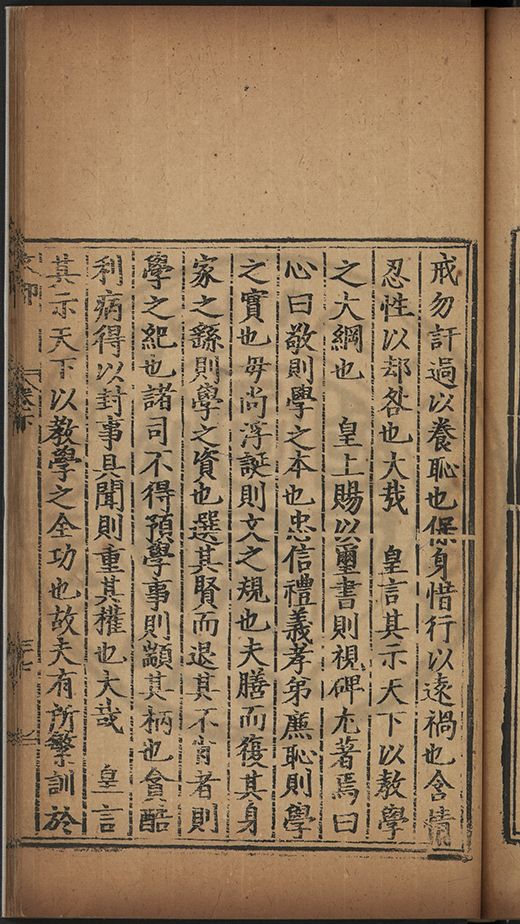 戒勿訐過以養恥也保身惜行以遠禍也含情
忍性以却咎也大哉　皇言其示天下以教學
之大綱也　皇上賜以璽書則視碑尤著焉曰
心曰敬則學之本也忠信禮義孝弟廉恥則學
之實也毋尚浮誕則文之規也夫膳而復其身
家之繇則學之資也選其賢而退其不肖者則
學之紀也諸司不得預學事則顓其柄也貪酷
利病得以封事具聞則重其權也大哉　皇言
其示天下以教學之全功也故夫有所繫訓於
卷下